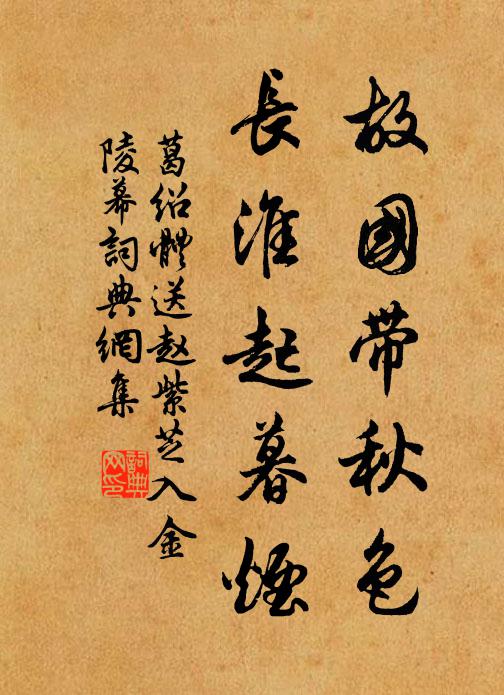 故國带秋色
長淮起暮煙
葛绍體送赵紫芝入金
陵幕詞典網集
詞典
网印